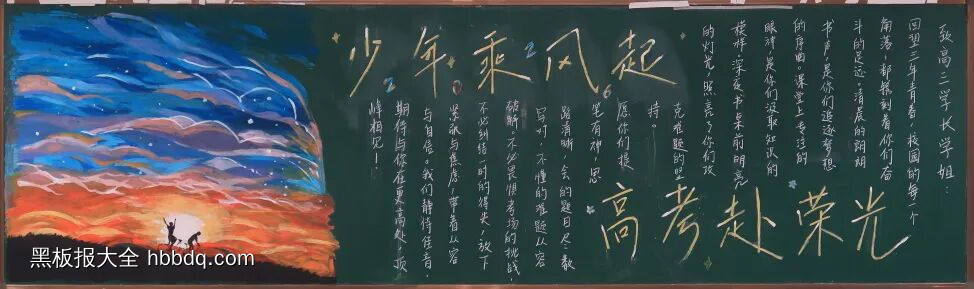 少年乘风起
2026
高考赴荣光
致高三学长学姐：
回望三年青春，校园的每一个
角落，都镌刻着你们奋
斗的足迹。清晨的朗朗
书声，是你们追逐梦想
的序曲；课堂上专注的
眼神，是你们汲取知识的
模样；深夜书桌前明亮
的灯光，照亮了你们攻
克难题的坚
持。
愿你们提
笔有神，思
路清晰，会的题目尽数
写对，不懂的难题从容
破解。不必畏惧考场的挑战，
不必纠结一时的得失，放下
紧张与焦虑，带着从容
与自信。我们静待佳音，
期待与你在更高处，顶
峰相见！
黑板报大全 hbbdq.com